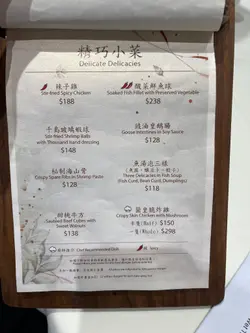 精巧小菜
Delicate Delicacies
辣子雞
Stir-fried Spicy Chicken
$188
酸菜鮮魚球
Soaked Fish Fillet with Preserved Vegetable
$238
千島玻璃蝦球
Stir-fried Shrimp Balls
with Thousand Island dressing
$148
豉油皇鵝腸
Goose Intestines in Soy Sauce
$128
秘制海山骨
Crispy Spare Ribs in Shrimp Paste
$128
魚湯泡三樣
Three Delicacies in Fish Soup
(Fish Cord, Bean Curd, Dumplings)
$118
甜桃牛方
Sauteed Beef Cubes with
Sweet Walnuts
$138
蘭皇脆炸雞
Crispy Skin Chicken with Mushroom
半隻(Half) $150
一隻(Whole) $298
Chef Recommended Dish
辣 Spicy